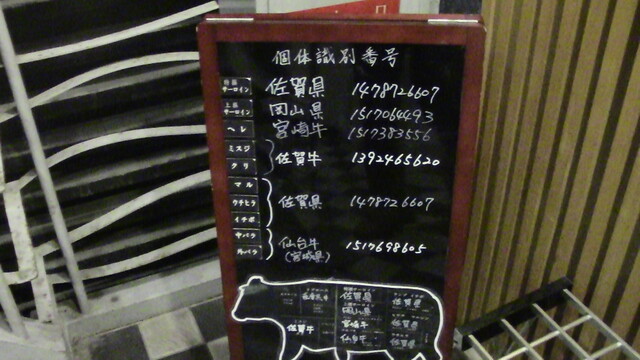 個体識別番号
特選サーロイン 佐賀県 1478726607
上選サーロイン 岡山県 1517064493
ヘレ 宮崎牛 1517383556
ミスジ
クリ
佐賀牛 1392465620
マル
ウチヒラ
イチボ
佐賀県 1478726607
中バラ
外バラ
仙台牛 1517698605
(宮城県)
佐賀県
岡山県
佐賀県
佐賀牛
宮崎牛
佐賀県
仙台牛
佐賀県